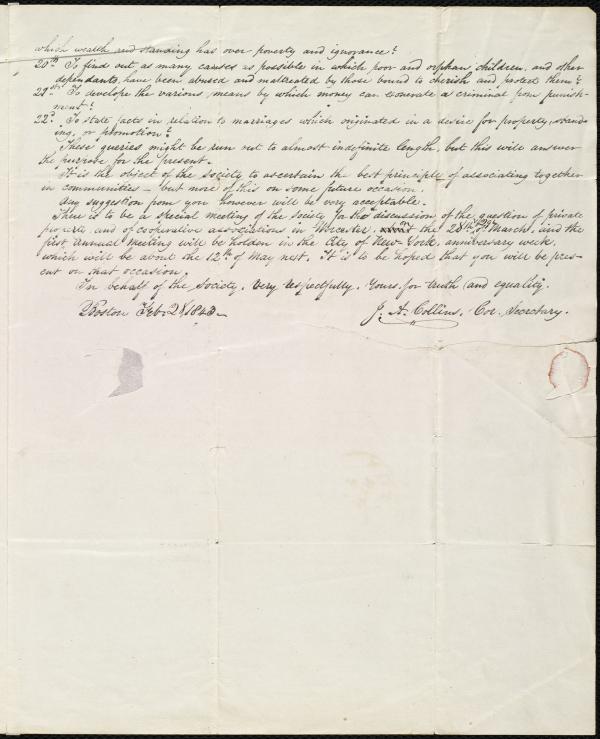 which wealth and standing has over poverty and ignorance?
20th. To find out as many causes as possible in which poor and orphan children, and other
dependants, have been abused and maltreated by those bound to cherish and protect them?
21st. To develope the various means by which money can exonerate a criminal from punish-
ment?
22d. To state facts in relation to marriages which originated in a desire for property, stand-
ing, or promotion?
These queries might be run out to almost indefinite length, but this will answer
the purpose for the present.
It is the object of the society to ascertain the best principle of associating together
in communities – but more of this on some future occasion.
Any suggestion from you however will be very acceptable.
There is to be a special meeting of the society for the discussion of the question of private
property, and of cooperative associations in Worcester, on the 28th of March, and the
first annual meeting will be holden in the City of New-York, anniversary week,
which will be about the 12th of May next. It is to be hoped that you will be pres-
ent on that occasion.
In behalf of the society, very respectfully, Yours for truth and equality.
Boston Feb. 28 1843.
J. A. Collins, Cor. Secretary.